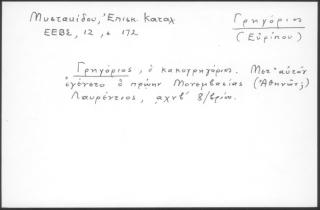 Μυστακίδου, Ἐπισκ. Καταλ
ΕΕΒΣ, 12, σ 172
Γρηγόριος
(Εὐρίπου)
Γρηγόριος, ὁ κακογρηγόριος. Μετ' αὐτὸν
ἐγένετο ὁ πρώην Μονεμβασίας (Ἀθηνῶν;)
Λαυρέντιος, αχνβ' 8/βρίῳ.